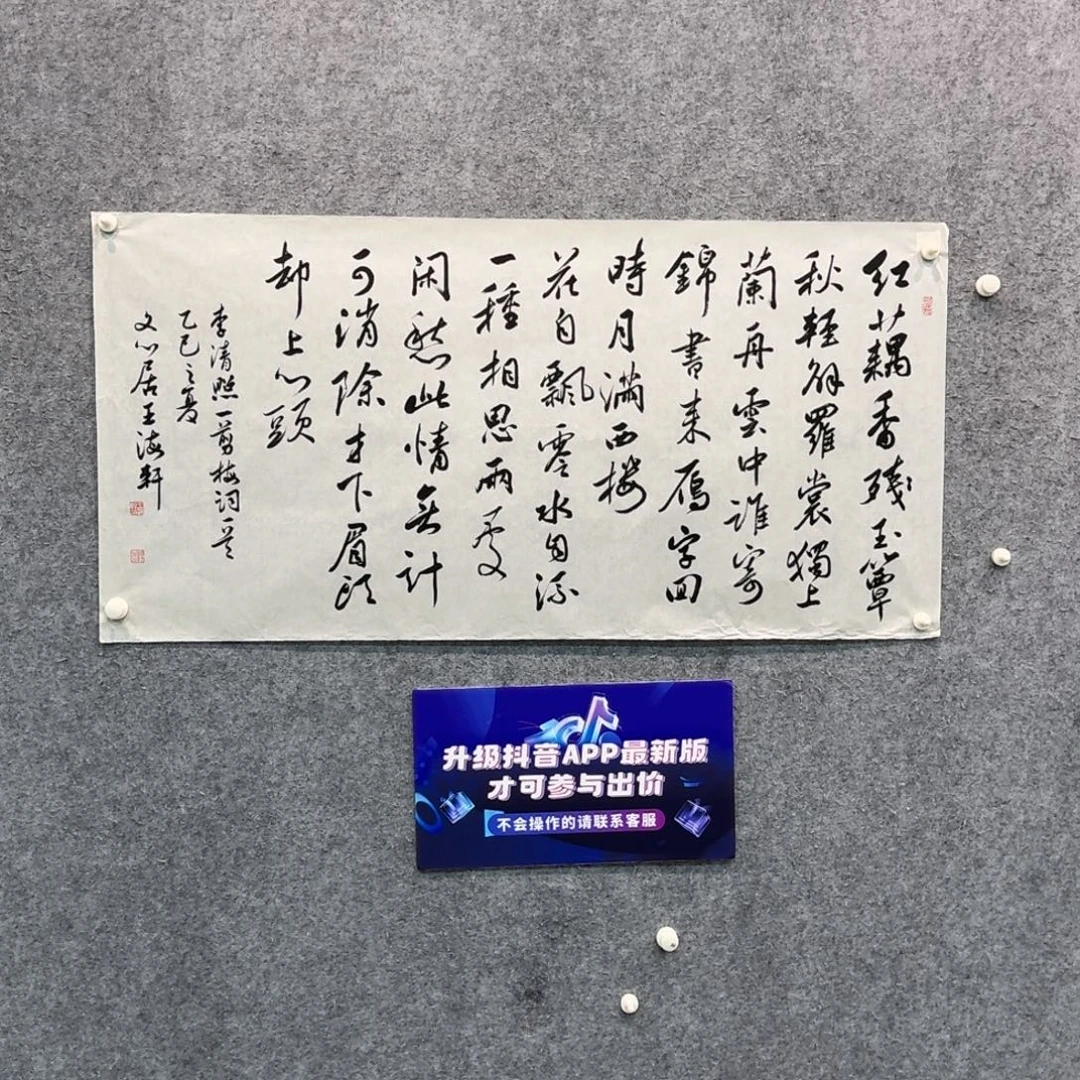 红藕香残玉簟
秋轻解羅裳獨上
蘭舟雲中誰寄
錦書来雁字回
時月满西楼
花自飄零水自流
一種相思兩處
闲愁此情无计
可消除才下眉头
却上心頭
李清照一剪梅词一首
乙巳之夏
文心居王海軒
升级抖音APP最新版
才可参与出价
不会操作的请联系客服